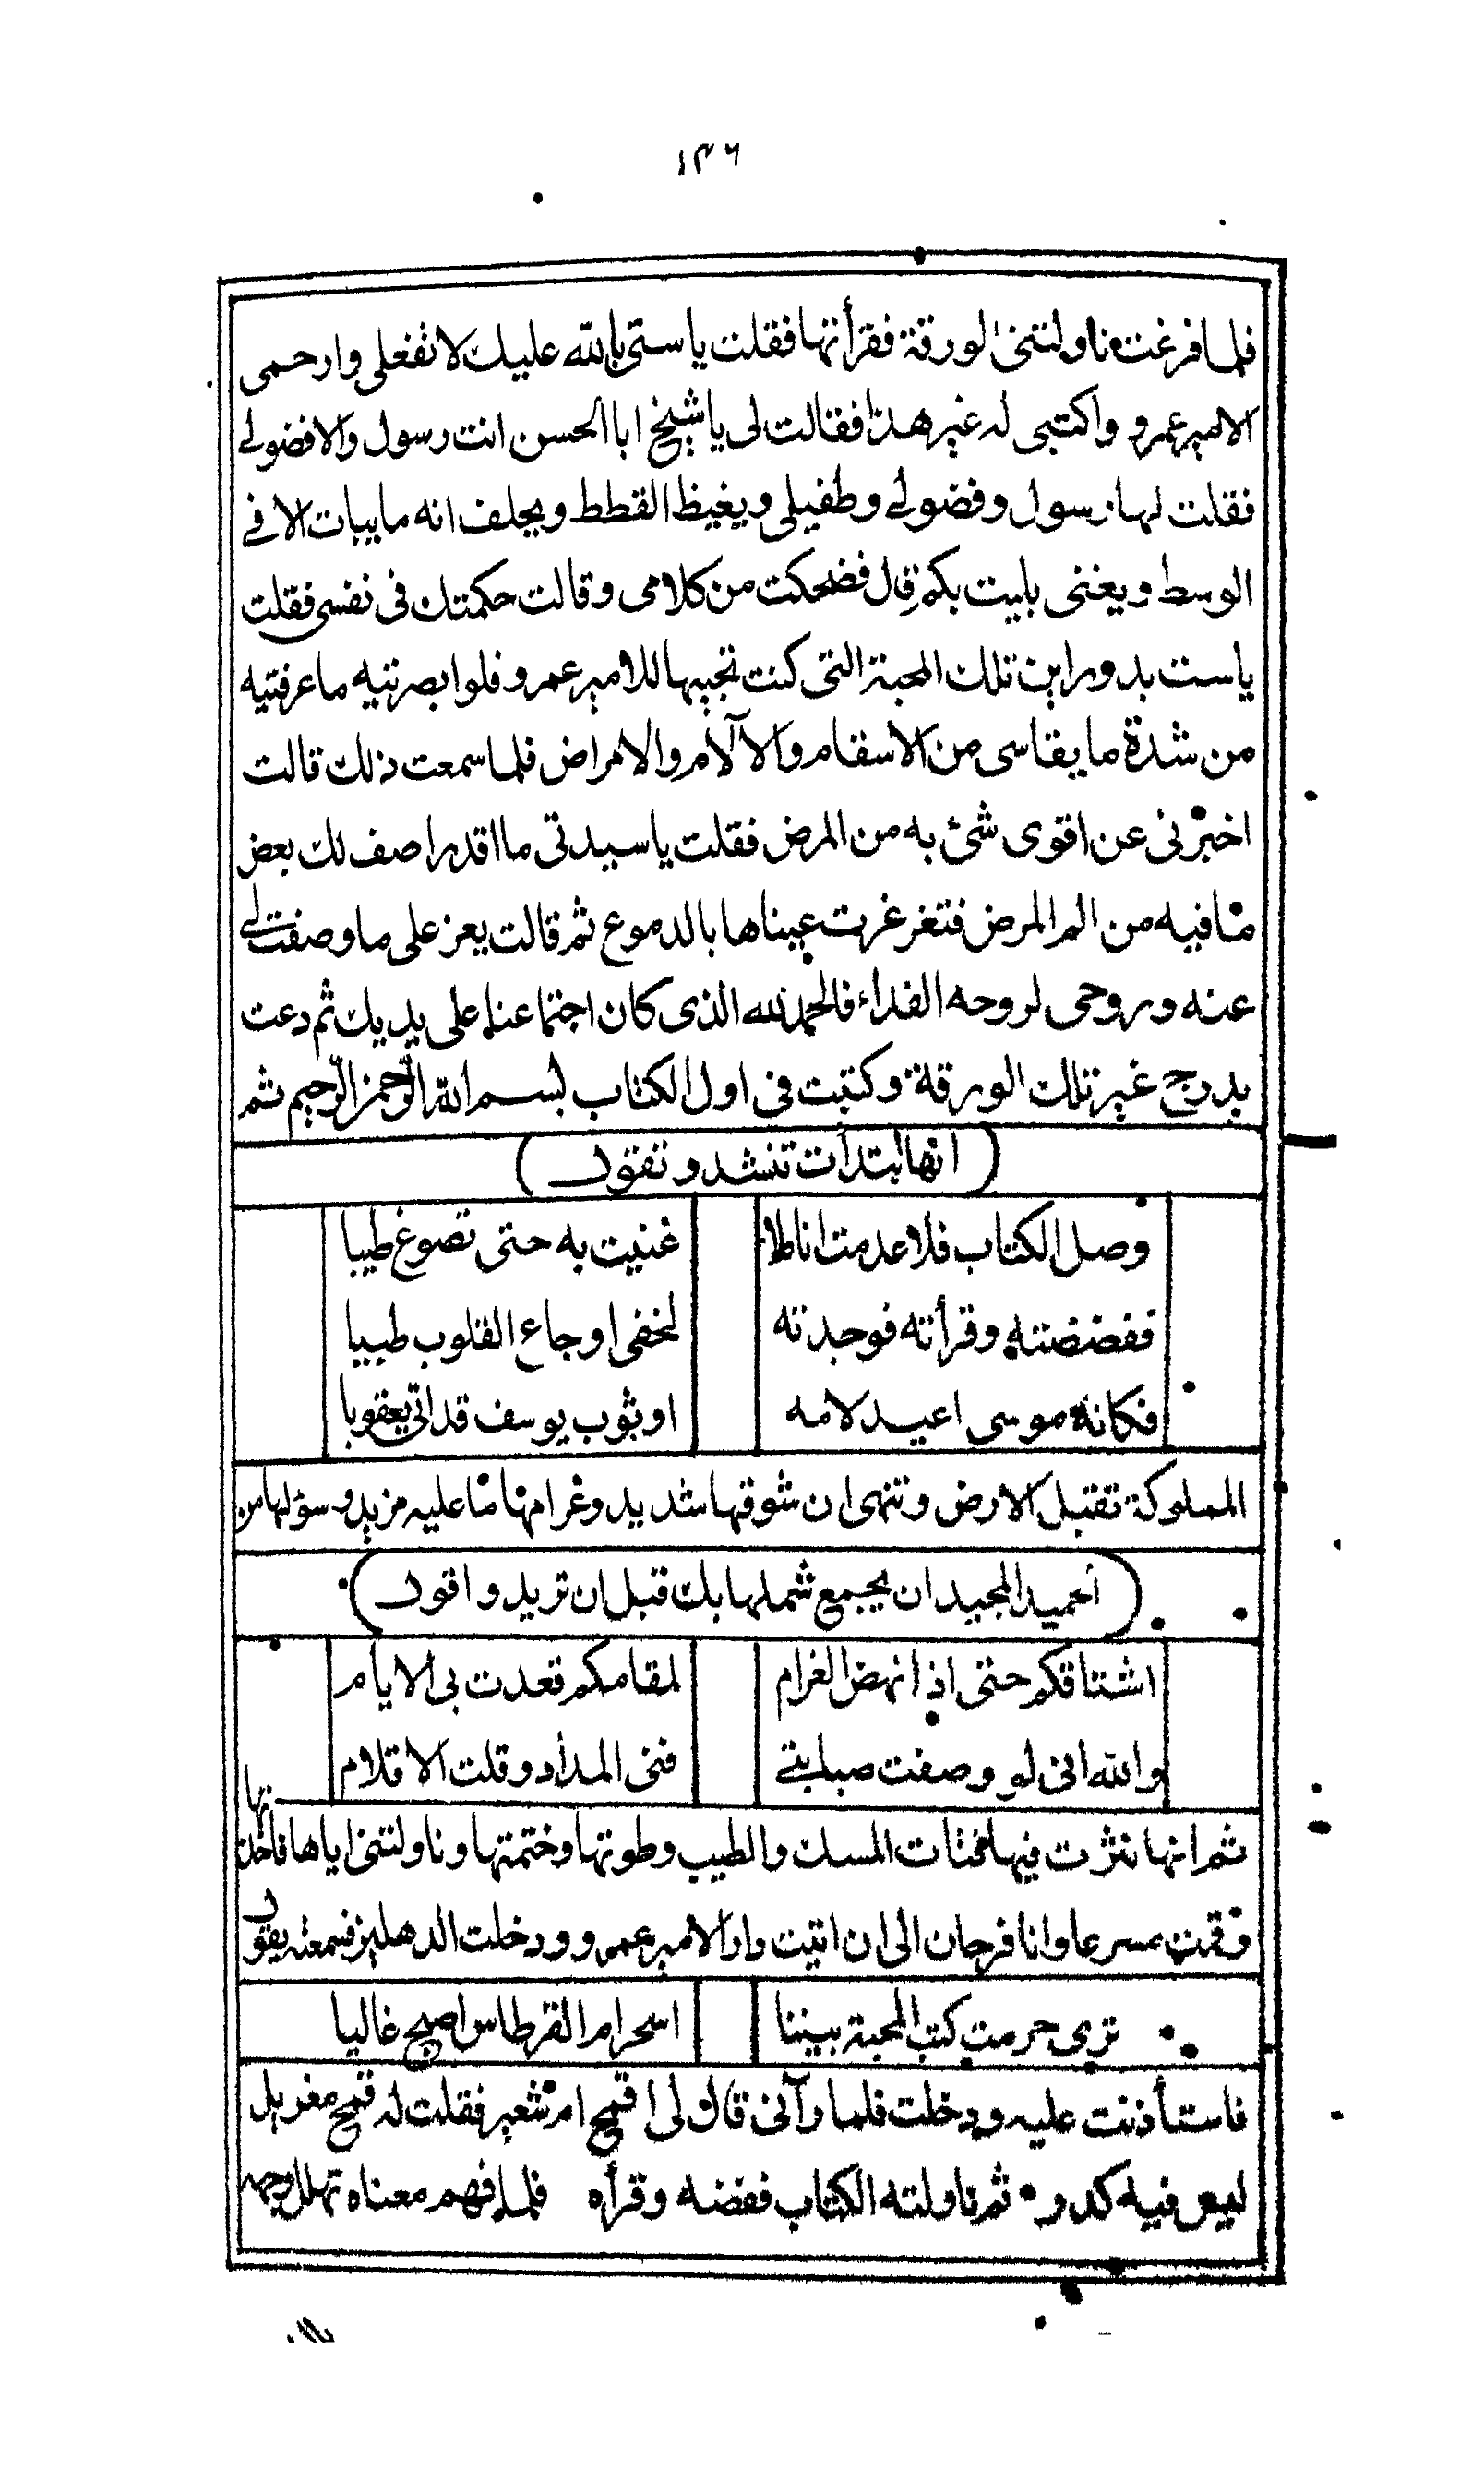 ١٣٦
فلما فرغت ناولتنى الورقة فقرأتها فقلت يا ستى بالله عليك لا تفعلى وارحمى
الامير عمرو واكتبى له غير هذا فقالت لى يا شيخ ابا الحسن انت رسول والا فضولى
فقلت لها رسول وفضولى وطفيلى ويغيظ القطط ويحلف انه ما يبات الا فى
الوسط ويغنى بليت بكم قال فضحكت من كلامى وقالت حكمتك فى نفسى فقلت
يا ست بدور اين تلك المحبة التى كنت تحبيها للامير عمرو فلو ابصرتيه ما عرفتيه
من شدة ما يقاسى من الاسقام والآلام والامراض فلما سمعت ذلك قالت
اخبرنى عن اقوى شئ به من المرض فقلت يا سيدتى ما اقدر اصف لك بعض
ما فيه من الم المرض فتغرغرت عيناها بالدموع ثم قالت يعز على ما وصفت لى
عنه وروحى لروحه الفداء فالحمد لله الذى كان اجتماعنا على يديك ثم دعت
بدرج غير تلك الورقة وكتبت فى اول الكتاب بسم الله الرحمن الرحيم ثم
(انها ابتدأت تنشد وتقول)
وصل الكتاب فلا عدمت اناملا غنيت به حتى تصوغ طيبا
ففضضته وقرأته فوجدته لخفى اوجاع القلوب طبيبا
فكانه موسى اعيد لامه او ثوب يوسف قد اتى يعقوبا
المملوكة تقبل الارض وتنهى ان شوقها شديد وغرامها ما عليه مزيد وسؤلها من
(الحميد المجيد ان يجمع شملها بك قبل ان تريد واقول)
اشتاقكم حتى اذا نهض الغرام لمقامكم قعدت بى الايام
والله انى لو وصفت صبابتى فنى المداد وقلت الاقلام
ثم انها نثرت فيها فتات المسك والطيب وطوتها وختمتها وناولتنى اياها فاخذتها
وقمت مسرعا وانا فرحان الى ان اتيت دار الامير عمرو ودخلت الدهليز فسمعته يقول
ترى حرمت كتب المحبة بيننا اسحرام القرطاس اصبح غاليا
فاستأذنت عليه ودخلت فلما رآنى قال لى ا قمح ام شعير فقلت له قمح مغربل
ليس فيه كدر • ثم ناولته الكتاب ففضه وقرأه فلما فهم معناه تهلل وجهه